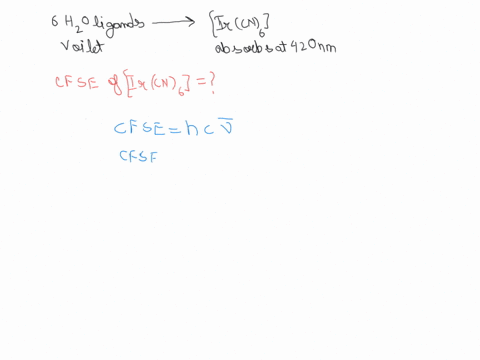 6 H₂O ligands ⟶ [Ir(CN)₆]
Vailet absorbs at 420nm
CFSE of [Ir(CN)₆] = ?
CFSE = h c ν̅
CFSF